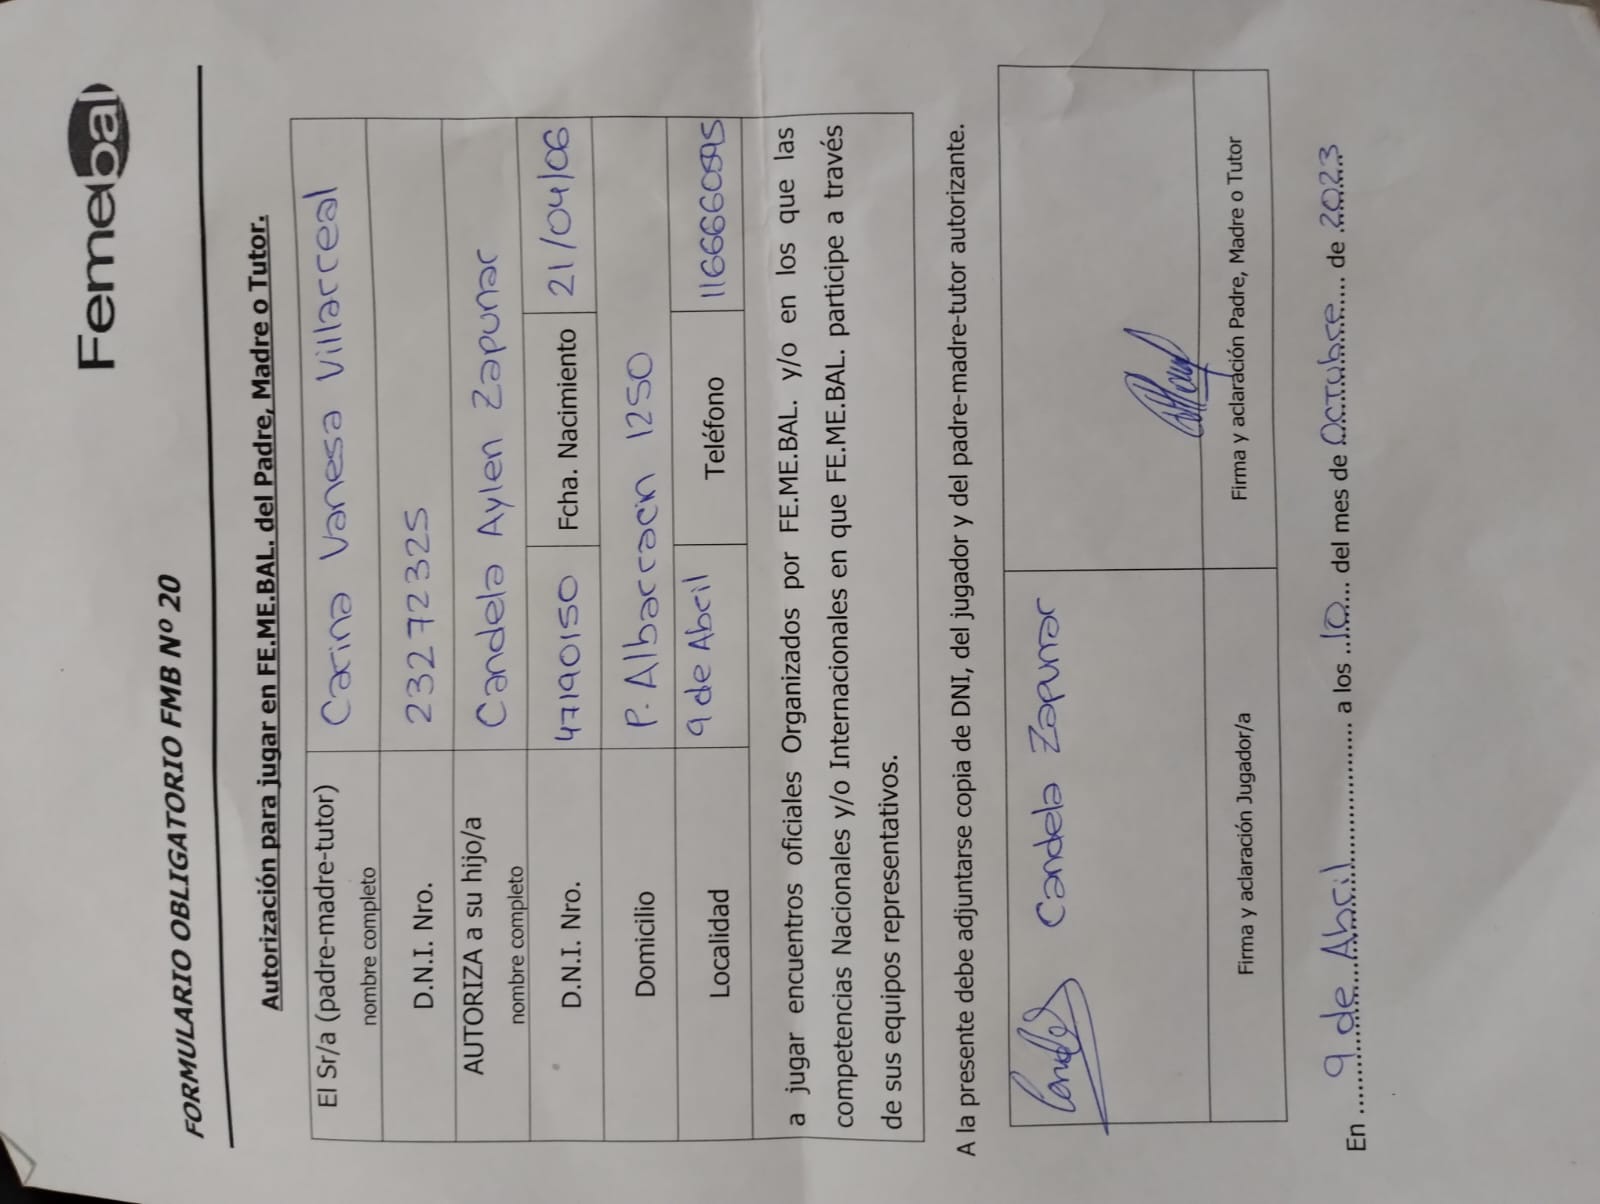 Femebal
FORMULARIO OBLIGATORIO FMB Nº 20
Autorización para jugar en FE.ME.BAL. del Padre, Madre o Tutor.
El Sr/a (padre-madre-tutor) Carina Vanesa Villarreal
nombre completo
D.N.I. Nro. 23272325
AUTORIZA a su hijo/a Candela Aylen Zapunar
nombre completo
D.N.I. Nro. 47190150 Fcha. Nacimiento 21/04/06
Domicilio P. Albarracin 1250
Localidad 9 de Abril Teléfono 1166660595
a jugar encuentros oficiales Organizados por FE.ME.BAL. y/o en los que las
competencias Nacionales y/o Internacionales en que FE.ME.BAL. participe a través
de sus equipos representativos.
A la presente debe adjuntarse copia de DNI, del jugador y del padre-madre-tutor autorizante.
Candela Zapunar
Firma y aclaración Jugador/a Firma y aclaración Padre, Madre o Tutor
En 9 de Abril a los 10 del mes de Octubre de 2023